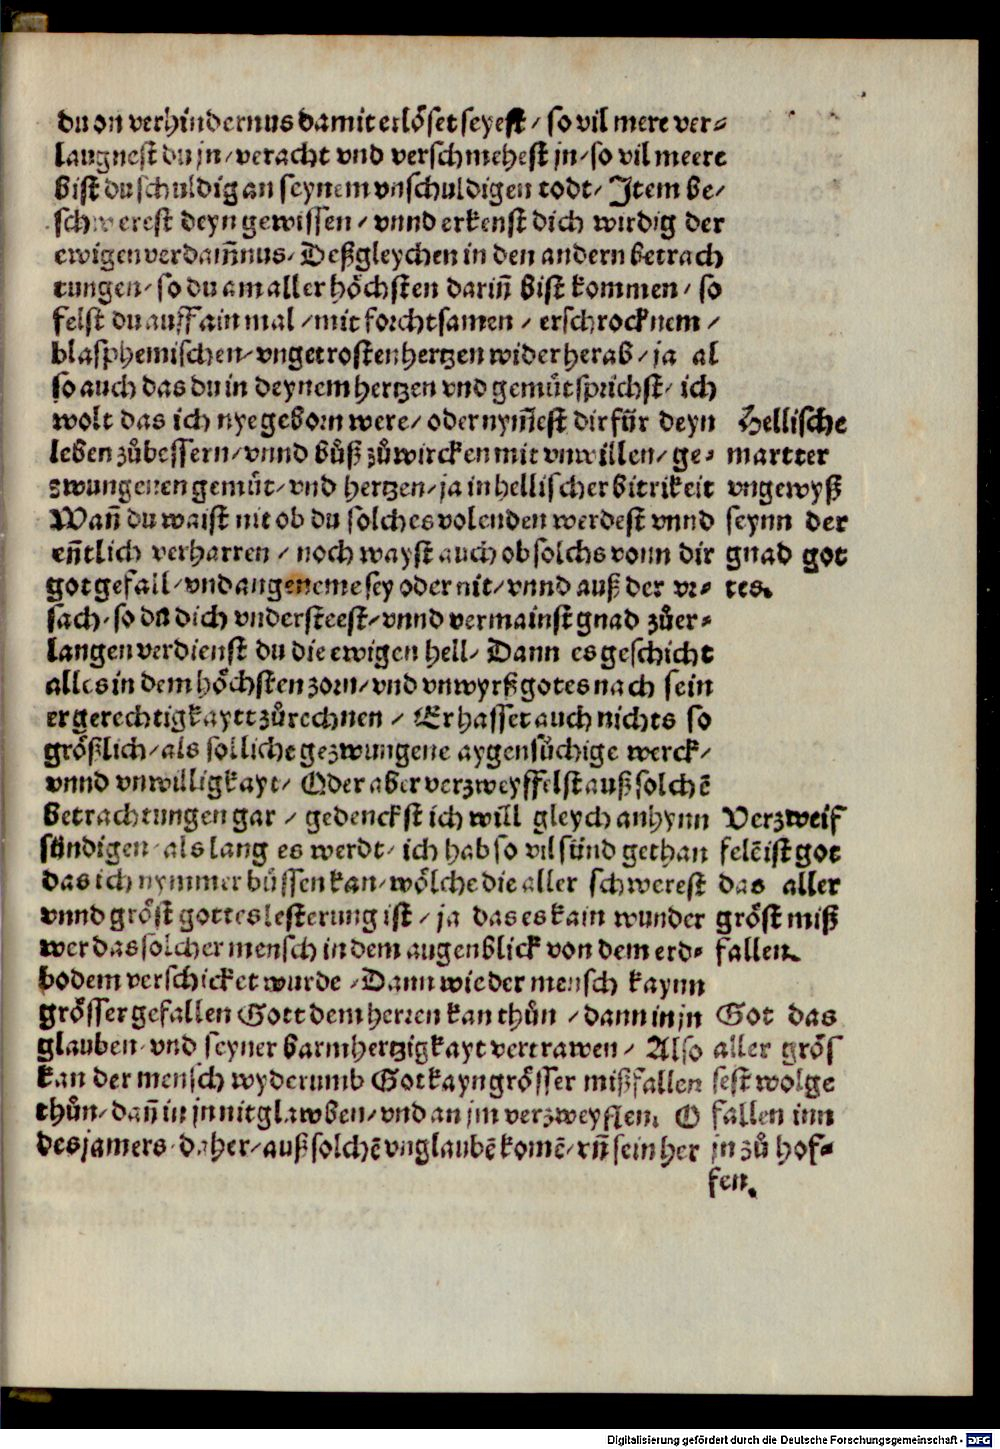 du on verhindernus damit erlöset seyest / so vil mere ver⸗
laugnest du jn / veracht vnd verschmehest jn / so vil meere
bist du schuldig an seynem vnschuldigen todt / Item be/
schwerest deyn gewissen / vnnd erkenst dich wirdig der
ewigen verdam̃nus / Deßgleychen in den andern betrach
tungen / so du am aller höchsten darin̄ bist kommen / so
felst du auff ain mal / mit forchtsamen / erschrocknem /
blasphemischen / vngetrosten hertzen wider herab / ja al
so auch das du in deynem hertzen vnd gemüt sprichst / ich
wolt das ich nye geborn were / oder nym̄est dir für deyn
leben zůbessern / vnnd bůß zůwircken mit vnwillen / ge⸗
zwungenen gemüt / vnd hertzen / ja in hellischer bitrikeit
Wan̄ du waist nit ob du solches volenden werdest vnnd
en̄tlich verharren / noch wayst auch ob solchs vonn dir
got gefall / vnd angeneme sey oder nit / vnnd auß der vr⸗
sach / so du dich vndersteest / vnnd vermainst gnad zůer⸗
langen verdienst du die ewigen hell / Dann es geschicht
alles in dem höchsten zorn / vnd vnwyrß gotes nach sein
er gerechtigkaytt zůrechnen / Er hasset auch nichts so
größlich / als solliche gezwungene aygensüchige werck /
vnnd vnwilligkayt / Oder aber verzweyffelst auß solchē
betrachtungen gar / gedenckst ich will gleych anhynn
sündigen / als lang es werdt / ich hab so vil sünd gethan
das ich nymmer büssen kan / wölche die aller schwerest
vnnd gröst gotteslesterung ist / ja das es kain wunder
wer das solcher mensch in dem augenblick von dem erd⸗
bodem verschicket wurde / Dann wie der mensch kaynn
grösser gefallen Gott dem herren kan thůn / dann in jn
glauben / vnd seyner barmhertzigkayt vertrawen / Also
kan der mensch wyderumb Got kayn grösser mißfallen
thůn / dan̄ in jn nit glawben / vnd an jm verzweyflen. O
des jamers / daher / auß solchē vnglaubē komē / vn̄ sein her
Hellische
martter
vngewyß
seynn der
gnad got
tes.
Verzweif
felē ist got
das aller
gröst miß
fallen.
Got das
aller grös
sest wolge
fallen inn
jn zů hof⸗
fen.
Digitalisierung gefördert durch die Deutsche Forschungsgemeinschaft - DFG